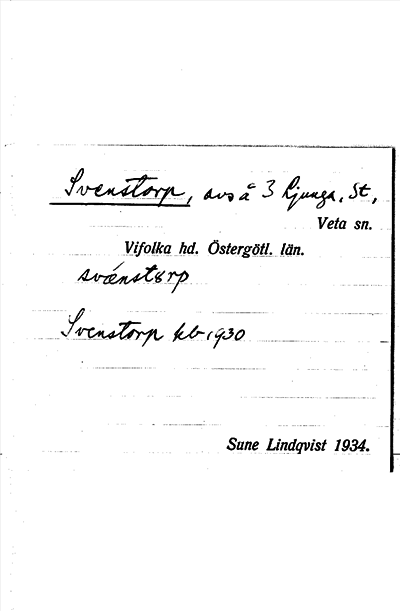 Svenstorp, avs å 3 Ljunga, St,
Veta sn.
Vifolka hd. Östergötl. län.
svǽnstɷrp
Svenstorp kb 1930
Sune Lindqvist 1934.